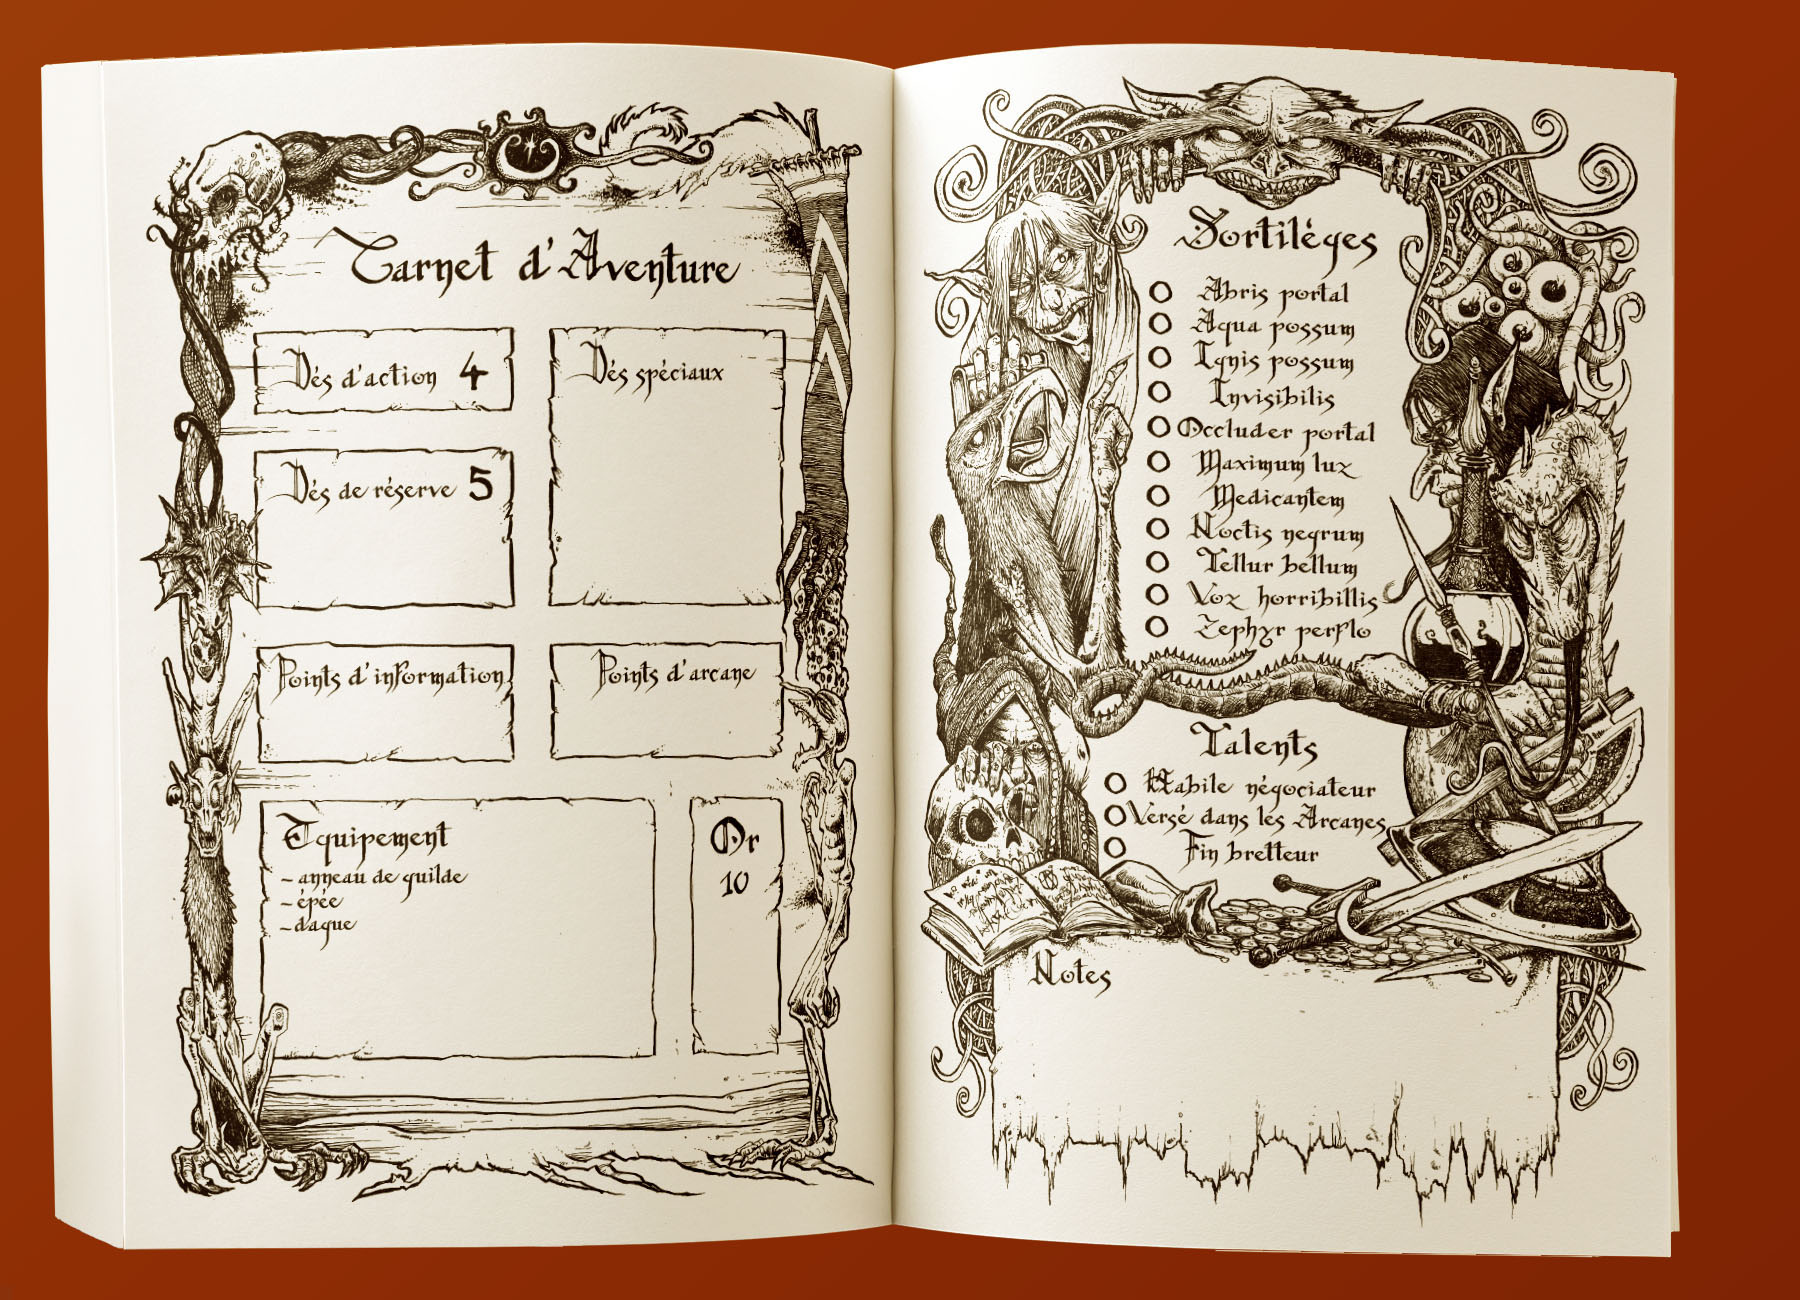 Carnet d'Aventure
Dés d'action 4
Dés spéciaux
Dés de réserve 5
Points d'information
Points d'arcane
Equipement
- anneau de guilde
- épée
- dague
Or
10
Sortilèges
Abris portal
Aqua possum
Ignis possum
Invisibilis
Occluder portal
Maximum lux
Medicantem
Noctis negrum
Tellur bellum
Vox horribillis
Zephyr perflo
Talents
Habile négociateur
Versé dans les Arcanes
Fin bretteur
Notes